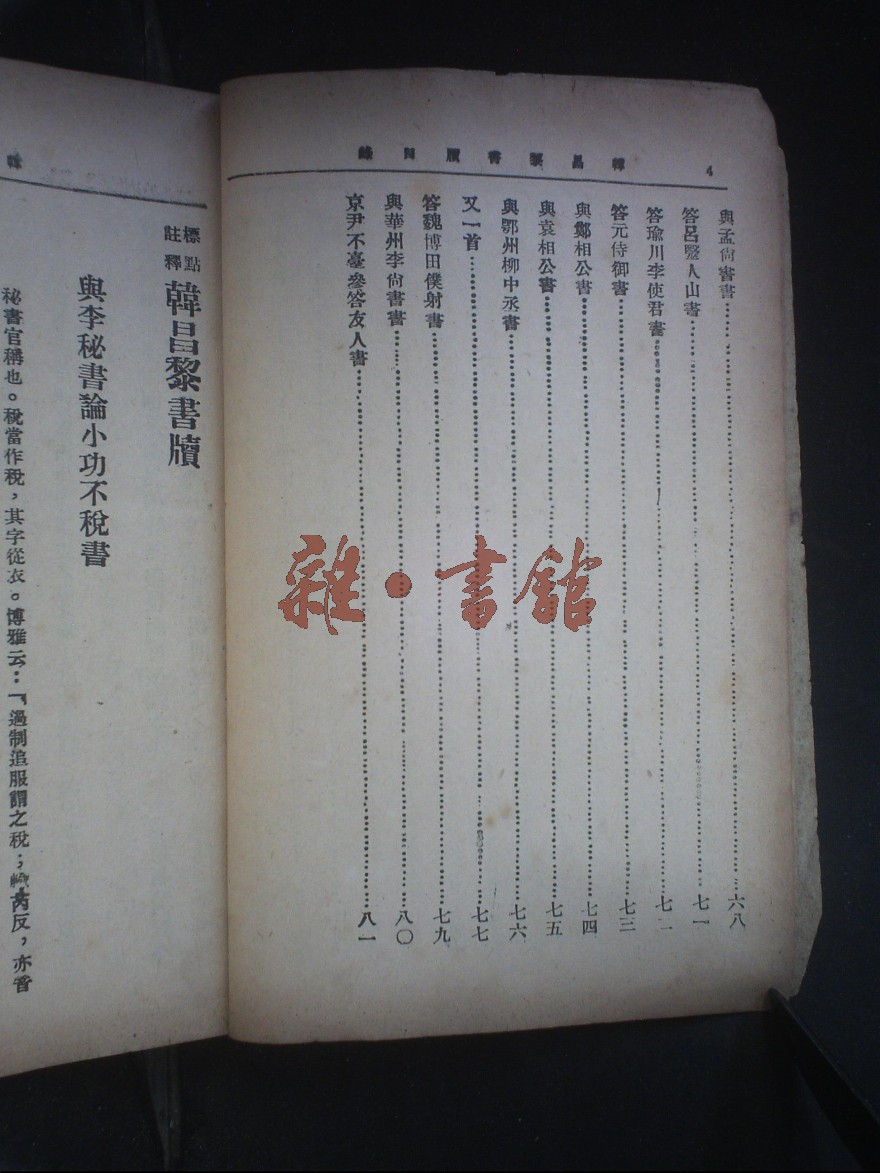 4
韓昌黎書牘目錄
與孟尙書書……六八
答呂毉人山書……七一
答瑜川李使君書……七二
答元侍御書……七三
與鄭相公書……七四
與袁相公書……七五
與鄂州柳中丞書……七六
又一首……七七
答魏博田僕射書……七九
與華州李尙書書……八〇
京尹不臺參答友人書……八一
雜·書館
韓
標點
註釋
韓昌黎書牘
與李秘書論小功不稅書
秘書官稱也。稅當作稅,其字從衣。博雅云:「過制追服謂之稅;輸芮反,亦音